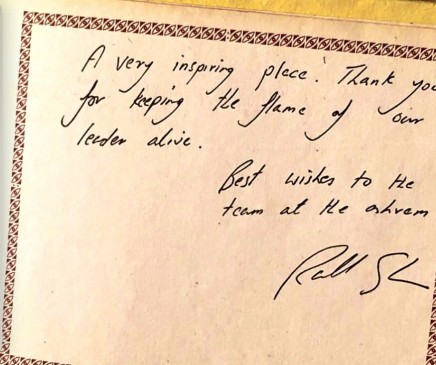 A very inspiring place! Thank you
for keeping the flame of our
leader alive.
Best wishes to the
team at the ashram